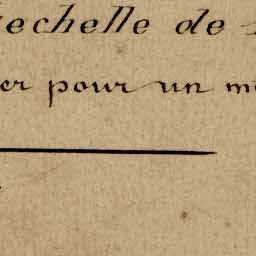 echelle de
er pour un m